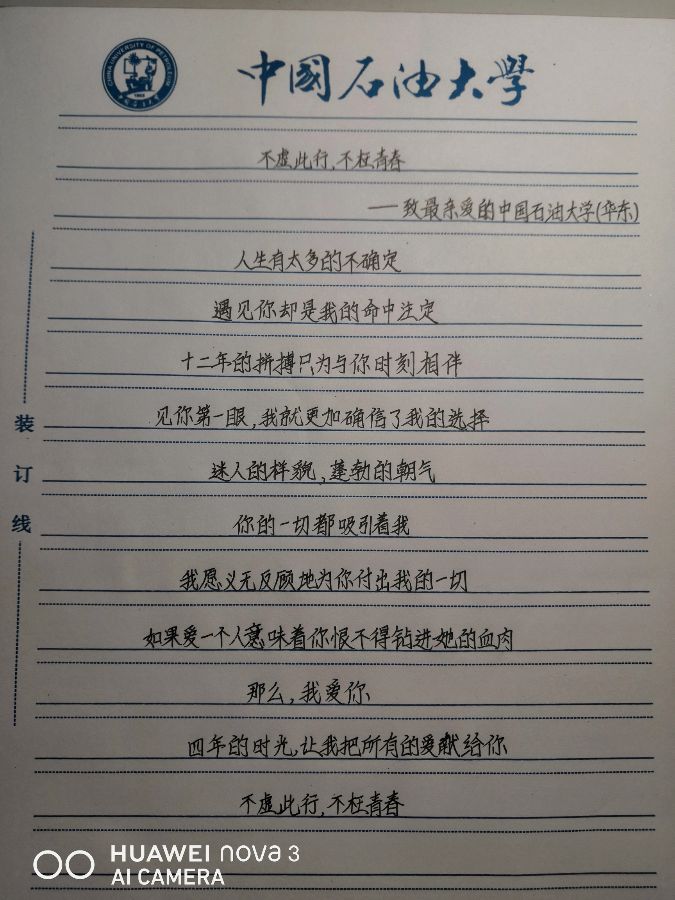 中国石油大学
不虚此行,不枉青春
——致最亲爱的中国石油大学(华东)
人生有太多的不确定
遇见你却是我的命中注定
十二年的拼搏只为与你时刻相伴
见你第一眼,我就更加确信了我的选择
迷人的样貌,蓬勃的朝气
你的一切都吸引着我
我愿义无反顾地为你付出我的一切
如果爱一个人意味着你恨不得钻进她的血肉
那么,我爱你
四年的时光,让我把所有的爱献给你
不虚此行,不枉青春
装
订
线
HUAWEI nova 3
AI CAMERA